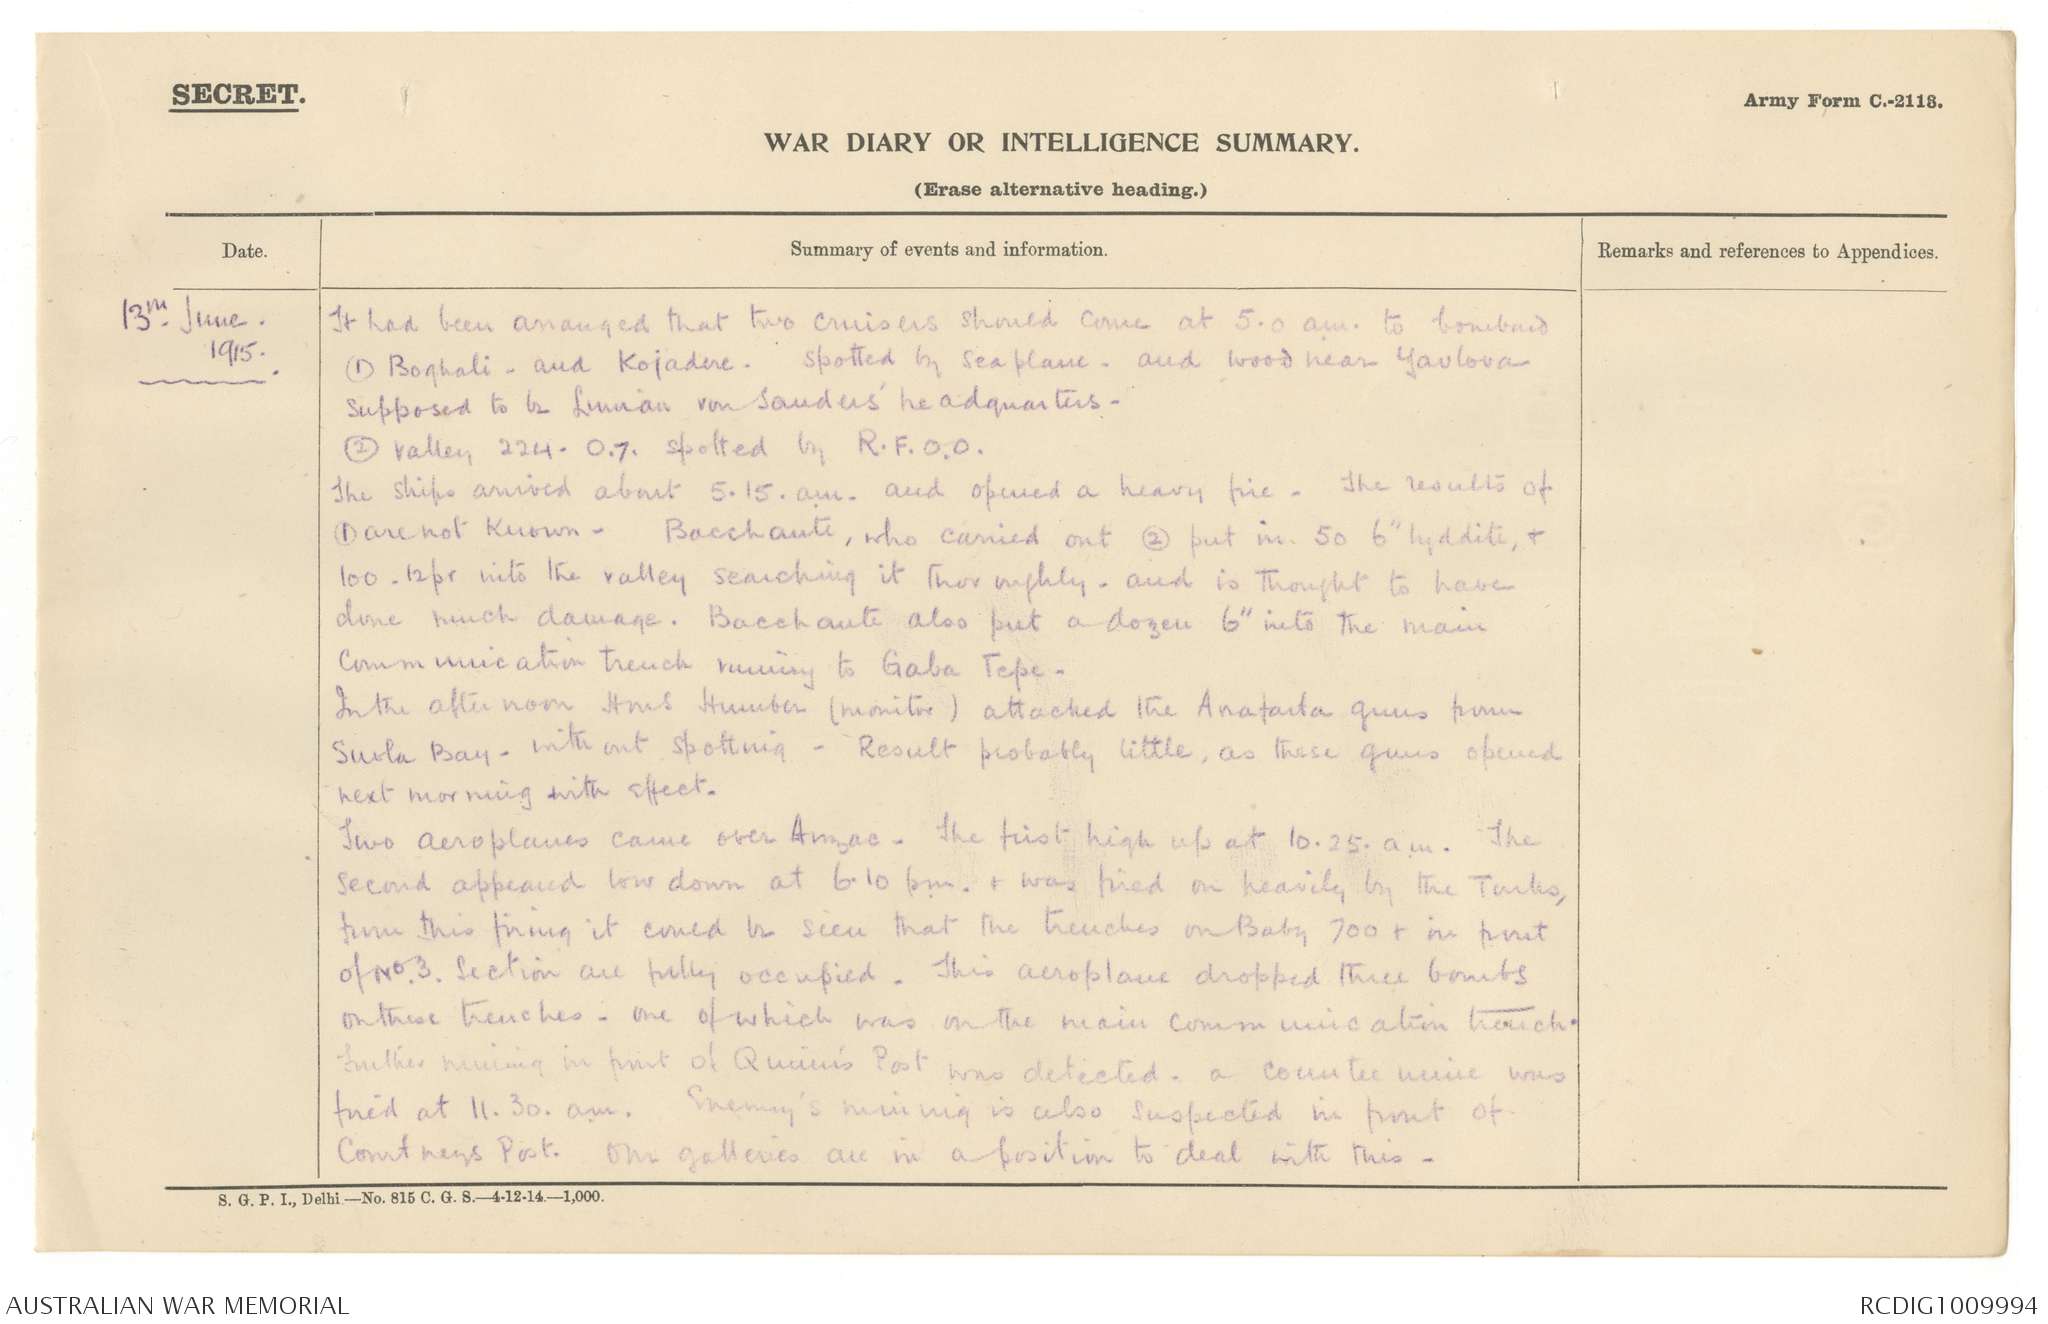 SECRET.
Army Form C.-2118.
WAR DIARY OR INTELLIGENCE SUMMARY.
(Erase alternative heading.)
Date.
Summary of events and information.
Remarks and references to Appendices.
13th June.
1915.
It had been arranged that two cruisers should come at 5.0 am. to bombard
① Boghali - and Kojadere. Spotted by seaplane - and wood near Yavlova
supposed to be Liman von Sanders' headquarters -
② valley 224. O.7. spotted by R.F.O.O.
The ships arrived about 5.15. am. and opened a heavy fire - The results of
① are not known - Bacchante, who carried out ② put in. 50 6" lyddite, +
100 - 12pr into the valley searching it thoroughly - and is thought to have
done much damage. Bacchante also put a dozen 6" into the main
communication trench running to Gaba Tepe -
In the afternoon HMS Humber (monitor) attacked the Anafarta guns from
Suvla Bay - without spotting - Result probably little, as these guns opened
next morning with effect.
Two aeroplanes came over Anzac - The first high up at 10.25. am. The
second appeared low down at 6.10 pm. + was fired on heavily by the Turks,
from this firing it could be seen that the trenches on Baby 700 + in front
of No.3. Section are fully occupied. This aeroplane dropped three bombs
on these trenches - one of which was on the main communication trench.
Further mining in front of Quinn's Post was detected - a counter mine was
fired at 11.30. am. Enemy's mining is also suspected in front of
Courtneys Post. Our galleries are in a position to deal with this -
S. G. P. I., Delhi.—No. 815 C. G. S.—4-12-14.—1,000.
AUSTRALIAN WAR MEMORIAL
RCDIG1009994